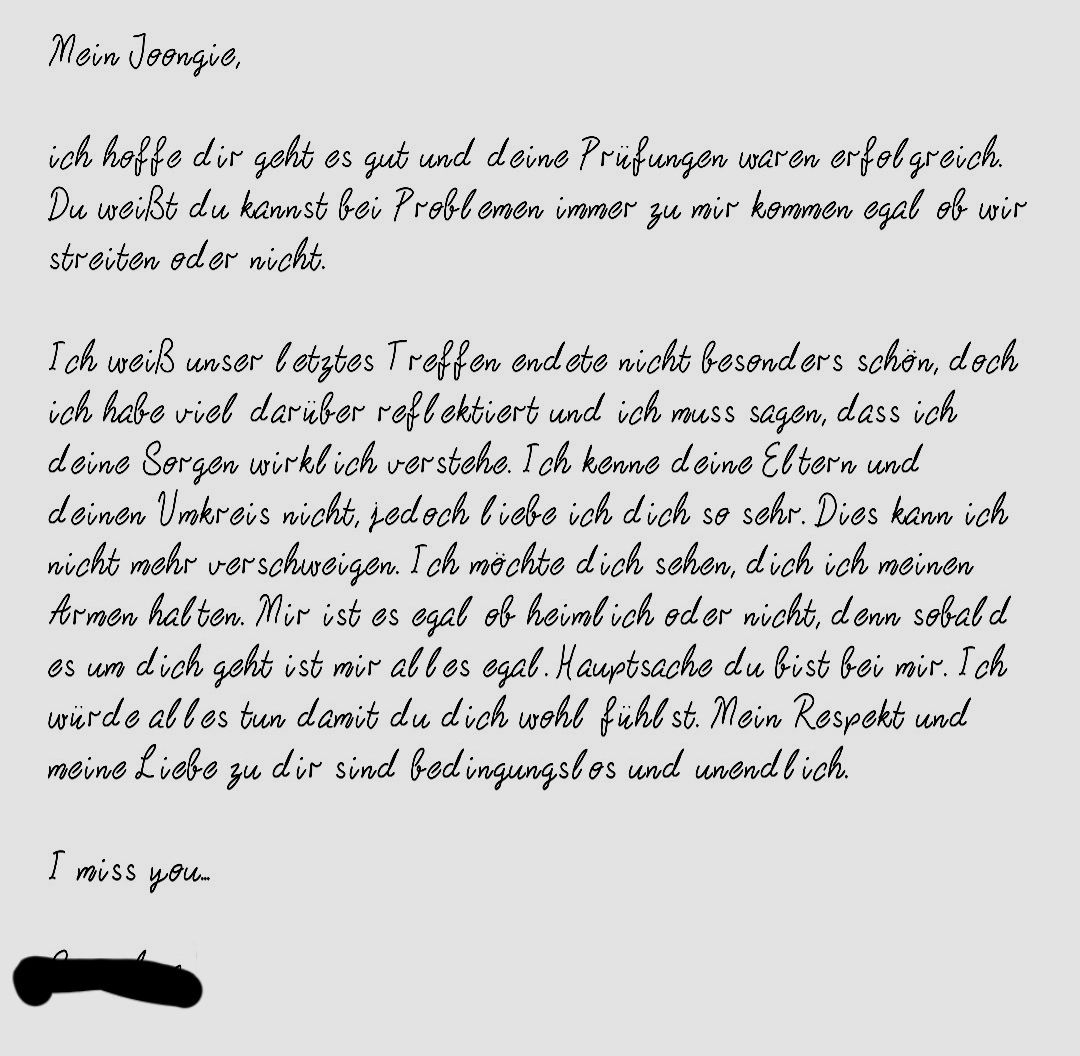 Mein Joongie,
ich hoffe dir geht es gut und deine Prüfungen waren erfolgreich.
Du weißt du kannst bei Problemen immer zu mir kommen egal ob wir
streiten oder nicht.
Ich weiß unser letztes Treffen endete nicht besonders schön, doch
ich habe viel darüber reflektiert und ich muss sagen, dass ich
deine Sorgen wirklich verstehe. Ich kenne deine Eltern und
deinen Umkreis nicht, jedoch liebe ich dich so sehr. Dies kann ich
nicht mehr verschweigen. Ich möchte dich sehen, dich ich meinen
Armen halten. Mir ist es egal ob heimlich oder nicht, denn sobald
es um dich geht ist mir alles egal. Hauptsache du bist bei mir. Ich
würde alles tun damit du dich wohl fühlst. Mein Respekt und
meine Liebe zu dir sind bedingungslos und unendlich.
I miss you...